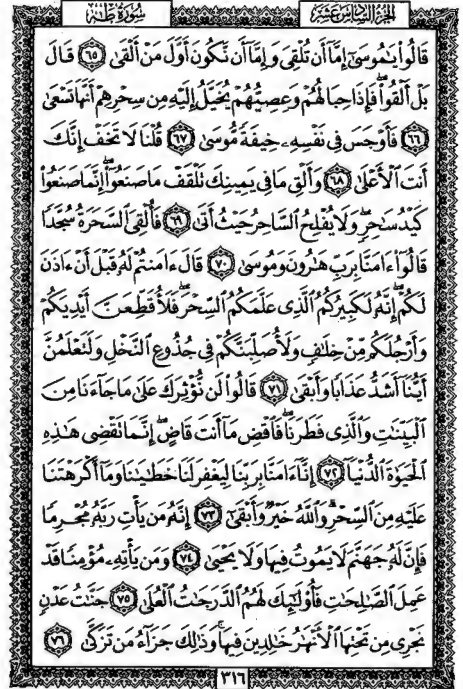 الجزء السادس عشر
سورة طه
قَالُوا۟ يَـٰمُوسَىٰٓ إِمَّآ أَن تُلْقِىَ وَإِمَّآ أَن نَّكُونَ أَوَّلَ مَنْ أَلْقَىٰ ٦٥ قَالَ
بَلْ أَلْقُوا۟ ۖ فَإِذَا حِبَالُهُمْ وَعِصِيُّهُمْ يُخَيَّلُ إِلَيْهِ مِن سِحْرِهِمْ أَنَّهَا تَسْعَىٰ
٦٦ فَأَوْجَسَ فِى نَفْسِهِۦ خِيفَةً مُّوسَىٰ ٦٧ قُلْنَا لَا تَخَفْ إِنَّكَ
أَنتَ ٱلْأَعْلَىٰ ٦٨ وَأَلْقِ مَا فِى يَمِينِكَ تَلْقَفْ مَا صَنَعُوٓا۟ ۖ إِنَّمَا صَنَعُوا۟
كَيْدُ سَـٰحِرٍ ۖ وَلَا يُفْلِحُ ٱلسَّاحِرُ حَيْثُ أَتَىٰ ٦٩ فَأُلْقِىَ ٱلسَّحَرَةُ سُجَّدًا
قَالُوٓا۟ ءَامَنَّا بِرَبِّ هَـٰرُونَ وَمُوسَىٰ ٧٠ قَالَ ءَامَنتُمْ لَهُۥ قَبْلَ أَنْ ءَاذَنَ
لَكُمْ ۖ إِنَّهُۥ لَكَبِيرُكُمُ ٱلَّذِى عَلَّمَكُمُ ٱلسِّحْرَ ۖ فَلَأُقَطِّعَنَّ أَيْدِيَكُمْ
وَأَرْجُلَكُم مِّنْ خِلَـٰفٍ وَلَأُصَلِّبَنَّكُمْ فِى جُذُوعِ ٱلنَّخْلِ وَلَتَعْلَمُنَّ
أَيُّنَآ أَشَدُّ عَذَابًا وَأَبْقَىٰ ٧١ قَالُوا۟ لَن نُّؤْثِرَكَ عَلَىٰ مَا جَآءَنَا مِنَ
ٱلْبَيِّنَـٰتِ وَٱلَّذِى فَطَرَنَا ۖ فَٱقْضِ مَآ أَنتَ قَاضٍ ۖ إِنَّمَا تَقْضِى هَـٰذِهِ
ٱلْحَيَوٰةَ ٱلدُّنْيَآ ٧٢ إِنَّآ ءَامَنَّا بِرَبِّنَا لِيَغْفِرَ لَنَا خَطَـٰيَـٰنَا وَمَآ أَكْرَهْتَنَا
عَلَيْهِ مِنَ ٱلسِّحْرِ ۗ وَٱللَّهُ خَيْرٌ وَأَبْقَىٰٓ ٧٣ إِنَّهُۥ مَن يَأْتِ رَبَّهُۥ مُجْرِمًا
فَإِنَّ لَهُۥ جَهَنَّمَ لَا يَمُوتُ فِيهَا وَلَا يَحْيَىٰ ٧٤ وَمَن يَأْتِهِۦ مُؤْمِنًا قَدْ
عَمِلَ ٱلصَّـٰلِحَـٰتِ فَأُو۟لَـٰٓئِكَ لَهُمُ ٱلدَّرَجَـٰتُ ٱلْعُلَىٰ ٧٥ جَنَّـٰتُ عَدْنٍ
تَجْرِى مِن تَحْتِهَا ٱلْأَنْهَـٰرُ خَـٰلِدِينَ فِيهَا ۚ وَذَٰلِكَ جَزَآءُ مَن تَزَكَّىٰ ٧٦
٣١٦